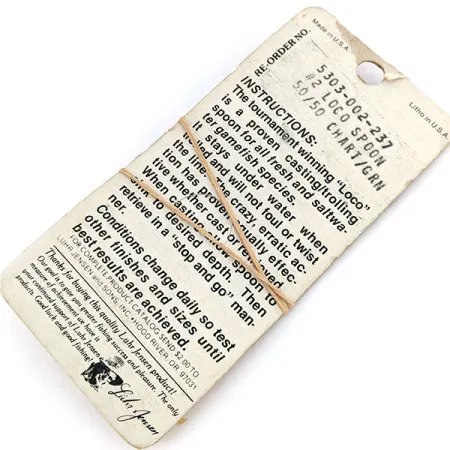 Made in U.S.A.
RE-ORDER NO.
5303-002-237
#2 LOCO SPOON
50/50 CHART/GRN
Litho in U.S.A.
INSTRUCTIONS:
The tournament winning "Loco"
is a proven casting/trolling
spoon for all fresh and saltwa-
ter gamefish species.
It stays under water when
trolled and will not foul or twist
the line. The crazy, erratic ac-
tion has proven equally effec-
tive whether cast or trolled.
When casting allow spoon to
sink to desired depth. Then
retrieve in a "stop and go" man-
ner.
Conditions change daily so test
other finishes and sizes until
best results are achieved.
FOR COMPLETE PRODUCT CATALOG SEND $2.00 TO
LUHR JENSEN and SONS, INC. • HOOD RIVER, OR 97031
Thanks for buying this quality Luhr Jensen product!
Our goal is to give you greater fishing success and pleasure. The only
measure of achievement we hope is
your continued support of Luhr Jensen
products. Good luck and
good fishing!
Luhr Jensen